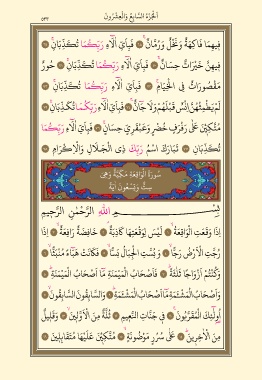 الجزء السابع والعشرون
٥٣٣
فِيهِمَا فَاكِهَةٌ وَنَخْلٌ وَرُمَّانٌ ۞ فَبِأَيِّ آلَاءِ رَبِّكُمَا تُكَذِّبَانِ ۞
فِيهِنَّ خَيْرَاتٌ حِسَانٌ ۞ فَبِأَيِّ آلَاءِ رَبِّكُمَا تُكَذِّبَانِ ۞ حُورٌ
مَقْصُورَاتٌ فِي الْخِيَامِ ۞ فَبِأَيِّ آلَاءِ رَبِّكُمَا تُكَذِّبَانِ ۞
لَمْ يَطْمِثْهُنَّ إِنْسٌ قَبْلَهُمْ وَلَا جَانٌّ ۞ فَبِأَيِّ آلَاءِ رَبِّكُمَا تُكَذِّبَانِ ۞
مُتَّكِئِينَ عَلَى رَفْرَفٍ خُضْرٍ وَعَبْقَرِيٍّ حِسَانٍ ۞ فَبِأَيِّ آلَاءِ رَبِّكُمَا
تُكَذِّبَانِ ۞ تَبَارَكَ اسْمُ رَبِّكَ ذِي الْجَلَالِ وَالْإِكْرَامِ ۞
سُورَةُ الْوَاقِعَةِ مَكِّيَّةٌ وَهِيَ
سِتٌّ وَتِسْعُونَ آيَةً
بِسْمِ اللَّهِ الرَّحْمَٰنِ الرَّحِيمِ
إِذَا وَقَعَتِ الْوَاقِعَةُ ۞ لَيْسَ لِوَقْعَتِهَا كَاذِبَةٌ ۞ خَافِضَةٌ رَافِعَةٌ ۞ إِذَا
رُجَّتِ الْأَرْضُ رَجًّا ۞ وَبُسَّتِ الْجِبَالُ بَسًّا ۞ فَكَانَتْ هَبَاءً مُنْبَثًّا ۞
وَكُنْتُمْ أَزْوَاجًا ثَلَاثَةً ۞ فَأَصْحَابُ الْمَيْمَنَةِ مَا أَصْحَابُ الْمَيْمَنَةِ ۞
وَأَصْحَابُ الْمَشْأَمَةِ مَا أَصْحَابُ الْمَشْأَمَةِ ۞ وَالسَّابِقُونَ السَّابِقُونَ ۞
أُولَئِكَ الْمُقَرَّبُونَ ۞ فِي جَنَّاتِ النَّعِيمِ ۞ ثُلَّةٌ مِنَ الْأَوَّلِينَ ۞ وَقَلِيلٌ
مِنَ الْآخِرِينَ ۞ عَلَى سُرُرٍ مَوْضُونَةٍ ۞ مُتَّكِئِينَ عَلَيْهَا مُتَقَابِلِينَ ۞